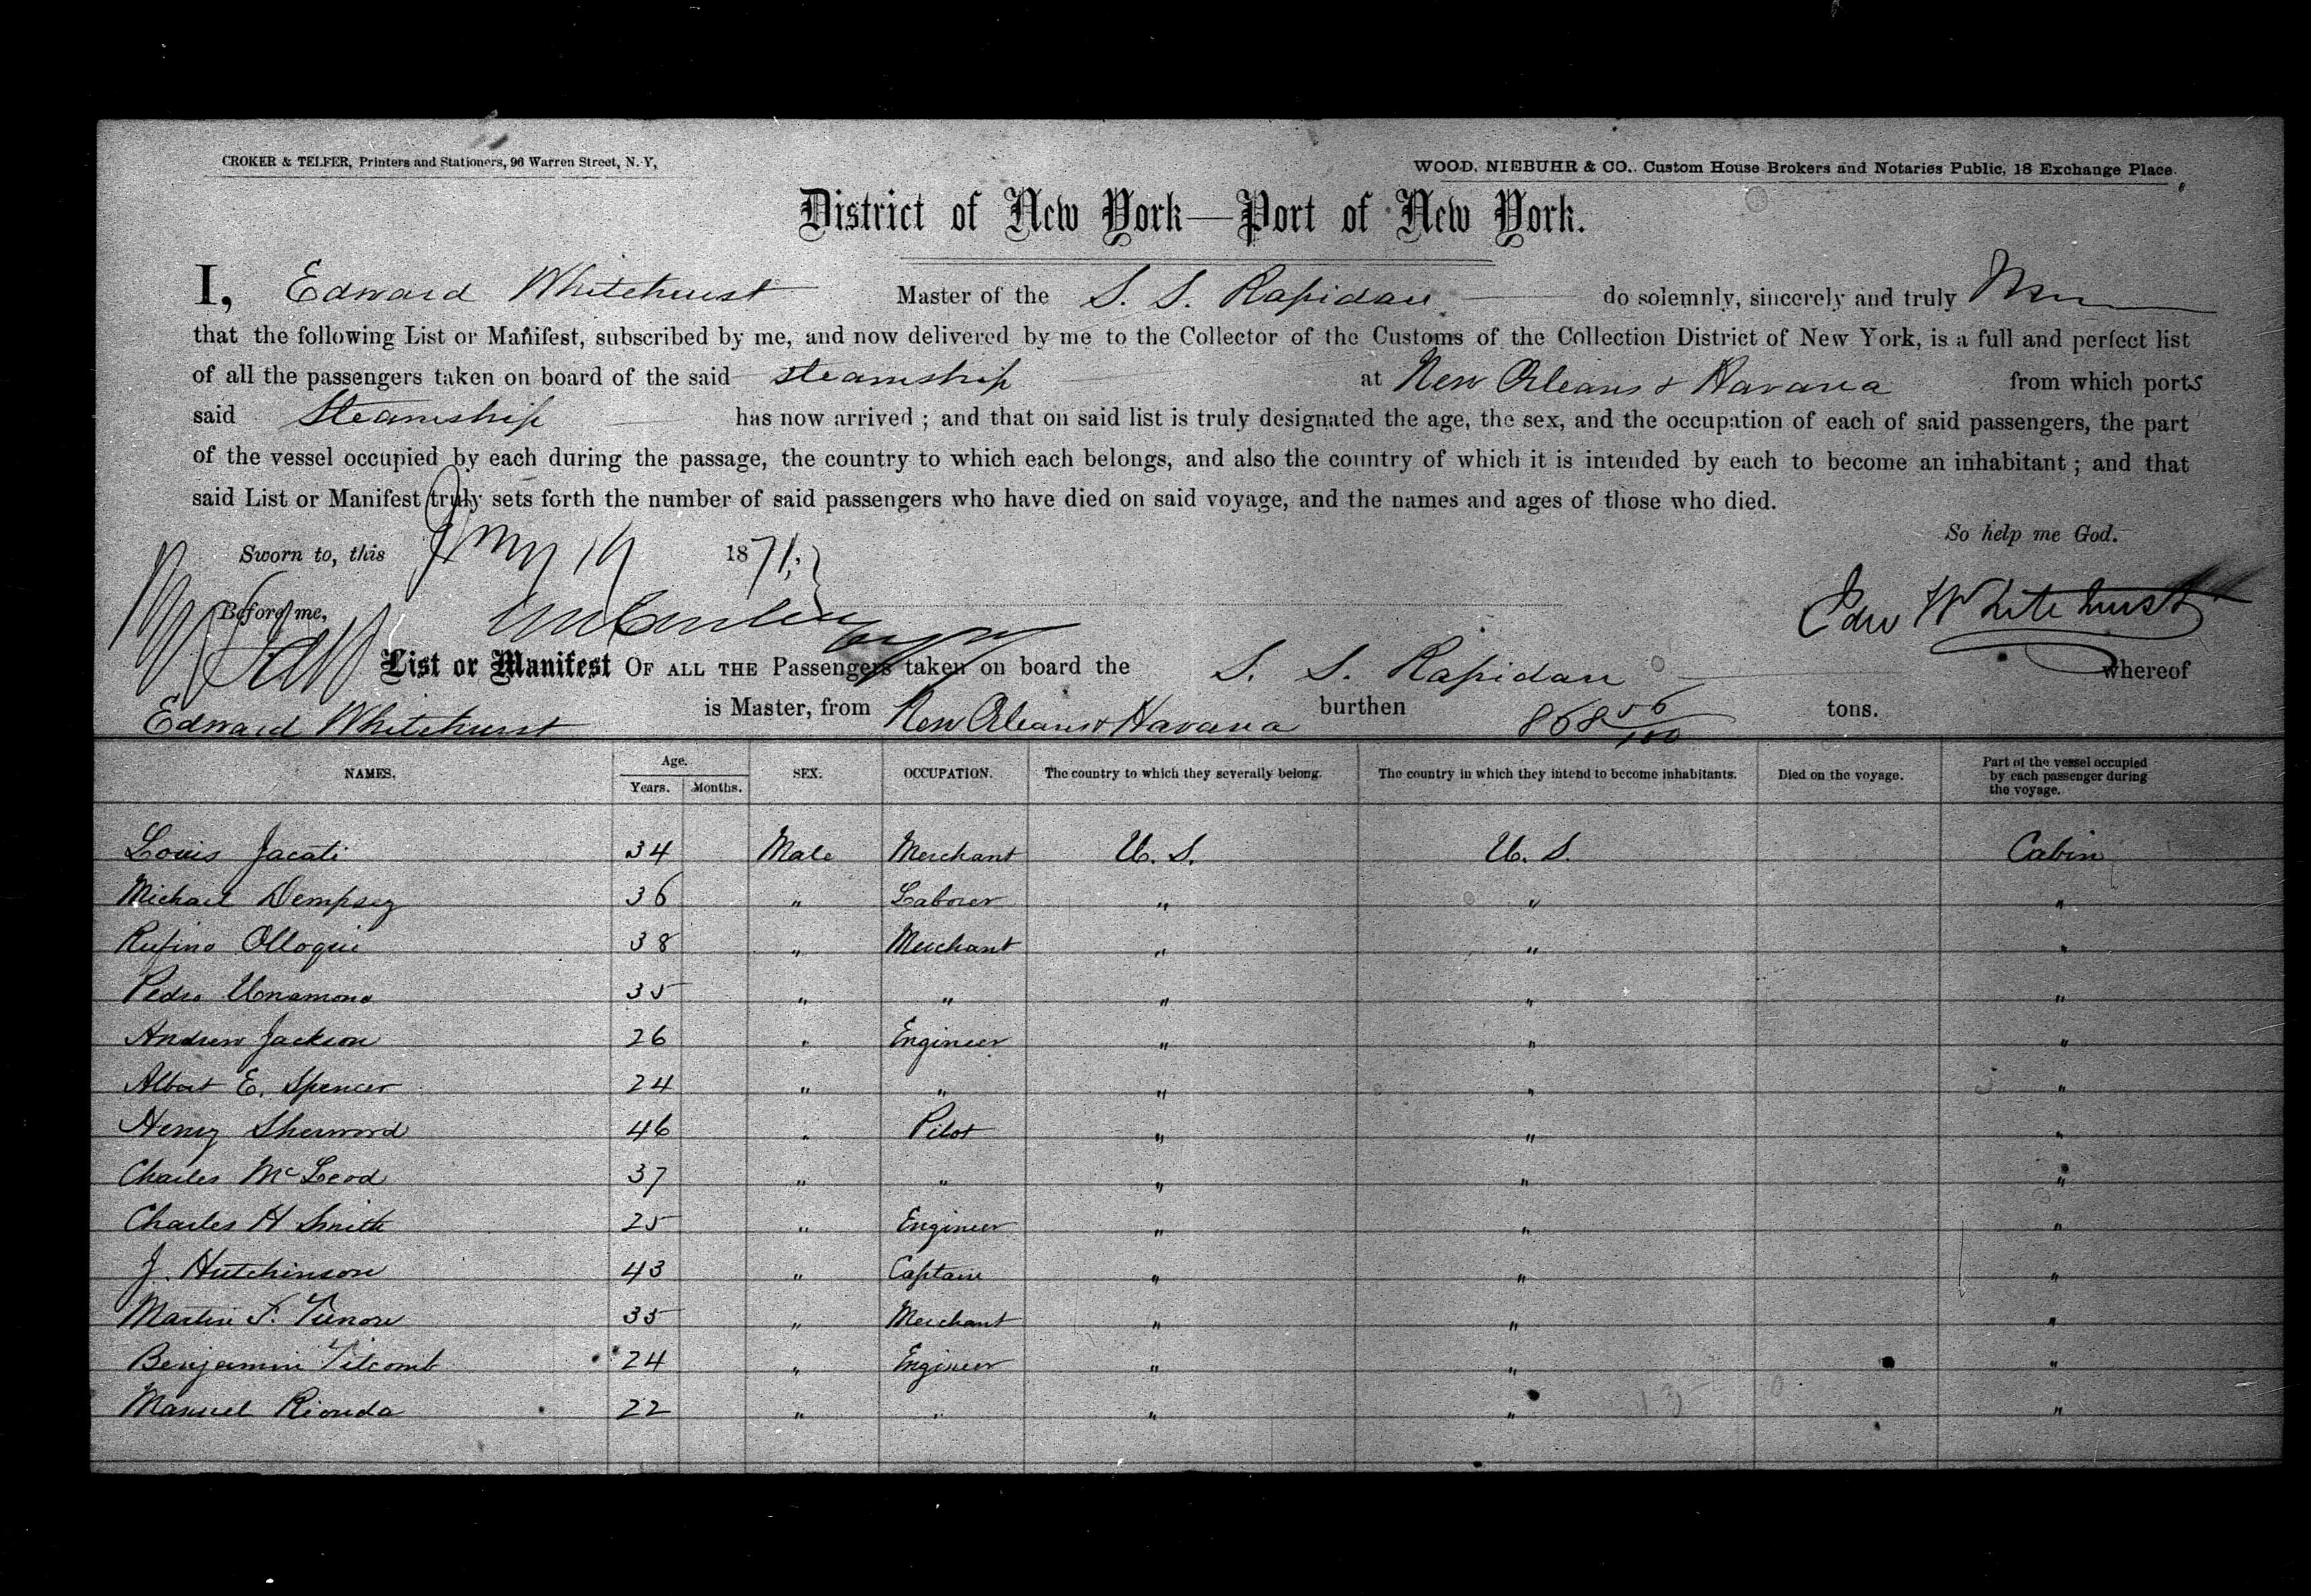 CROKER & TELFER, Printers and Stationers, 96 Warren Street, N.Y,
WOOD, NIEBUHR & CO., Custom House Brokers and Notaries Public, 18 Exchange Place.
District of New York—Port of New York.
I, Edward Whitehurst Master of the S. S. Rapidan do solemnly, sincerely and truly
that the following List or Manifest, subscribed by me, and now delivered by me to the Collector of the Customs of the Collection District of New York, is a full and perfect list
of all the passengers taken on board of the said steamship at New Orleans & Havana from which ports
said Steamship has now arrived; and that on said list is truly designated the age, the sex, and the occupation of each of said passengers, the part
of the vessel occupied by each during the passage, the country to which each belongs, and also the country of which it is intended by each to become an inhabitant; and that
said List or Manifest truly sets forth the number of said passengers who have died on said voyage, and the names and ages of those who died.
So help me God.
Sworn to, this 1871
Before me,
Edw Whitehurst
List or Manifest OF ALL THE Passengers taken on board the S. S. Rapidan whereof
Edward Whitehurst is Master, from New Orleans & Havana burthen 868 56/100 tons.
NAMES. Age. Years. Months. SEX. OCCUPATION. The country to which they severally belong. The country in which they intend to become inhabitants. Died on the voyage. Part of the vessel occupied by each passenger during the voyage.
Louis Jacati 34 Male Merchant U. S. U. S. Cabin
Michael Dempsey 36 " Laborer " " "
Rufino Olloqui 38 " Merchant " " "
Pedro 35 " " " " "
Andrew Jackson 26 " Engineer " " "
Albert E. Spencer 24 " " " " "
Henry Sherwood 46 " Pilot " " "
Charles McLeod 37 " " " " "
Charles H Smith 25 " Engineer " " "
J. Hutchinson 43 " Captain " " "
Martin F. 35 " Merchant " " "
Benjamin Titcomb 24 " Engineer " " "
Manuel Rionda 22 " " " " "